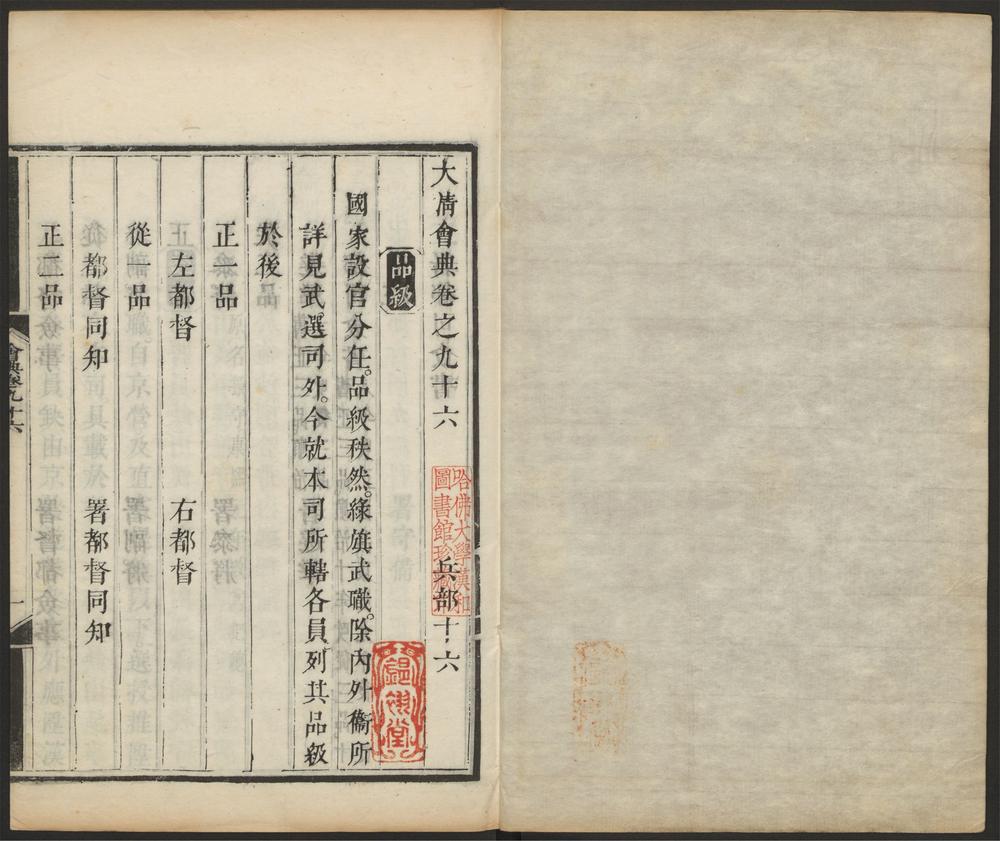 大淸會典卷之九十六　兵部十六
哈佛大學漢和
圖書館珍藏
品級
國家設官分任。品級秩然。綠旗武職。除內外衞所
詳見武選司外。今就本司所轄各員列其品級
於後
正一品
左都督　右都督
從一品
都督同知　署都督同知
正二品
會典卷九十六　一